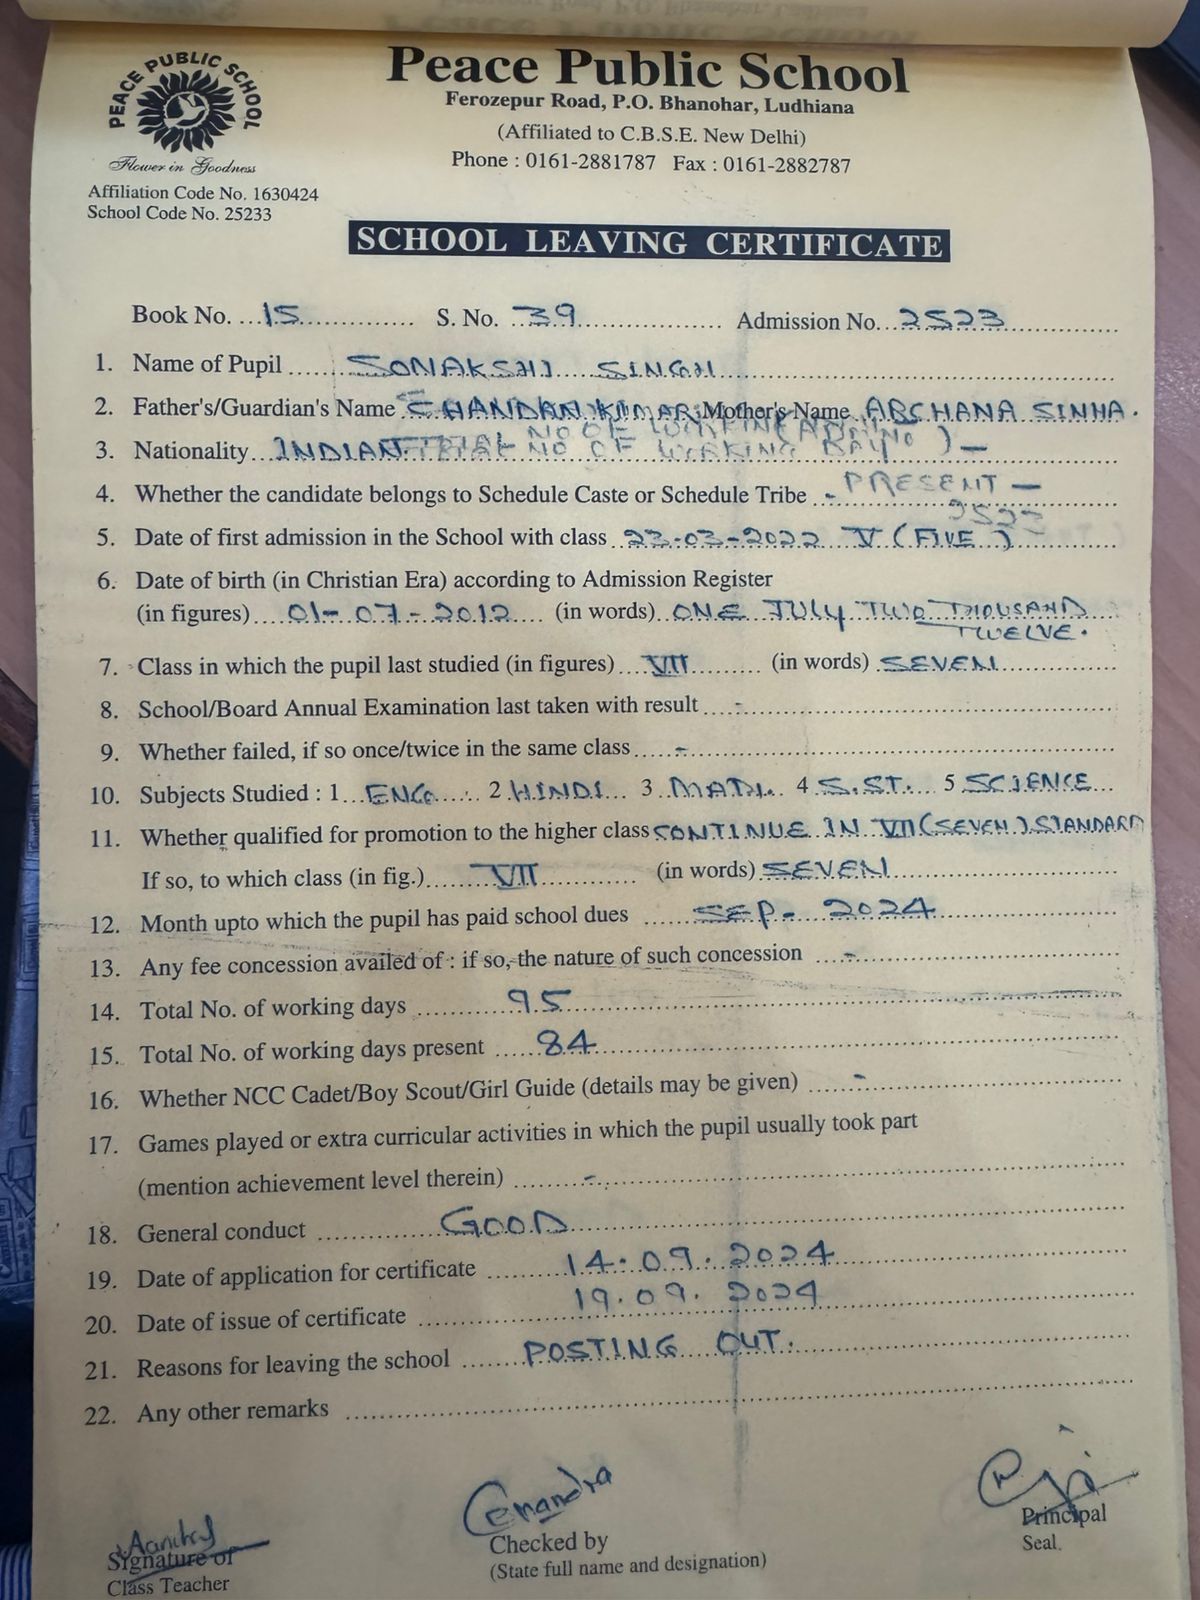 PEACE PUBLIC SCHOOL
Flower in Goodness
Affiliation Code No. 1630424
School Code No. 25233
Peace Public School
Ferozepur Road, P.O. Bhanohar, Ludhiana
(Affiliated to C.B.S.E. New Delhi)
Phone : 0161-2881787 Fax : 0161-2882787
SCHOOL LEAVING CERTIFICATE
Book No. ...15............... S. No. ..39.................... Admission No...2523...............
1. Name of Pupil ......SONAKSHI SINGH...............
2. Father's/Guardian's Name CHANDAN KUMAR Mother's Name ARCHANA SINHA.
3. Nationality...INDIAN TOTAL NO OF WORKING DAY ) —
4. Whether the candidate belongs to Schedule Caste or Schedule Tribe .- PRESENT —
2523
5. Date of first admission in the School with class 23-03-2022 V (FIVE)
6. Date of birth (in Christian Era) according to Admission Register
(in figures) ....01-07-2012.... (in words) ONE JULY TWO THOUSAND
TWELVE.
7. Class in which the pupil last studied (in figures) ...VII....... (in words) SEVEN
8. School/Board Annual Examination last taken with result ....-
9. Whether failed, if so once/twice in the same class .....-
10. Subjects Studied : 1 ENG. 2 HINDI 3 MATH. 4 S.ST. 5 SCIENCE
11. Whether qualified for promotion to the higher class CONTINUE IN VII (SEVEN) STANDARD
If so, to which class (in fig.)......VII............ (in words) SEVEN
12. Month upto which the pupil has paid school dues ......SEP- 2024
13. Any fee concession availed of : if so, the nature of such concession ....-
14. Total No. of working days ............95
15. Total No. of working days present ......84
16. Whether NCC Cadet/Boy Scout/Girl Guide (details may be given) ......-
17. Games played or extra curricular activities in which the pupil usually took part
(mention achievement level therein) .........-
18. General conduct ................GOOD
19. Date of application for certificate .........14.09.2024
20. Date of issue of certificate 19.09.2024
21. Reasons for leaving the school .......POSTING OUT.
22. Any other remarks
Signature of
Class Teacher
Checked by
(State full name and designation)
Principal
Seal.